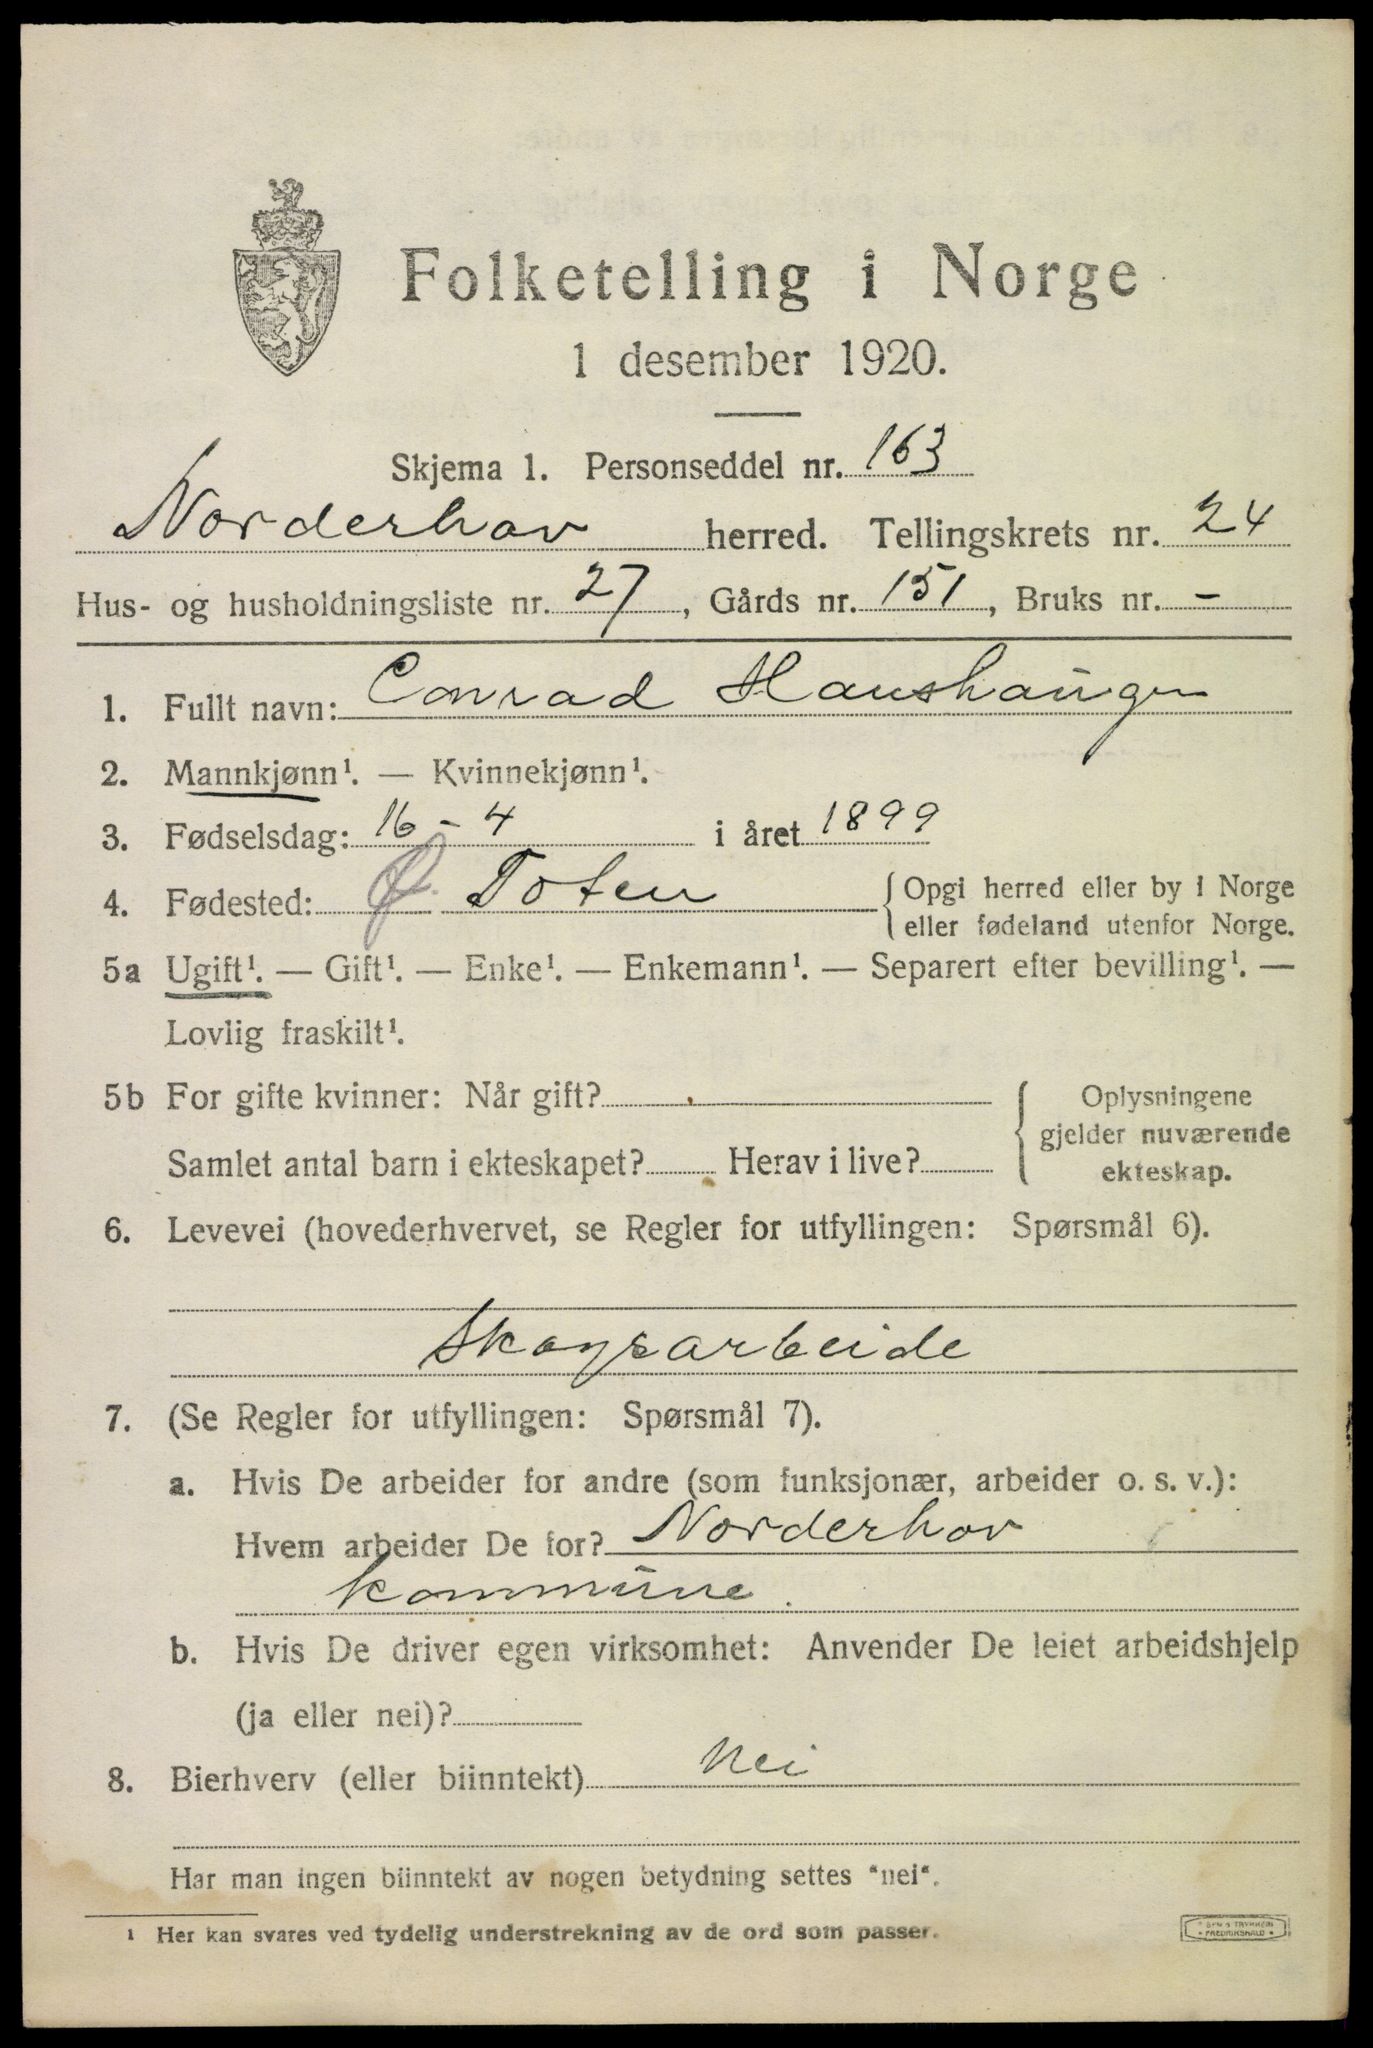 Folketelling i Norge
1 desember 1920.
Skjema 1. Personseddel nr. 163
Norderhov herred. Tellingskrets nr. 24
Hus- og husholdningsliste nr. 27, Gårds nr. 151, Bruks nr. -
1. Fullt navn: Conrad Haushaugen
2. Mannkjønn¹. — Kvinnekjønn¹.
3. Fødselsdag: 16 - 4 i året 1899
4. Fødested: Ø. Toten { Opgi herred eller by i Norge
eller fødeland utenfor Norge.
5a Ugift¹. — Gift¹. — Enke¹. — Enkemann¹. — Separert efter bevilling¹. —
Lovlig fraskilt¹.
5b For gifte kvinner: Når gift? { Oplysningene
gjelder nuværende
Samlet antal barn i ekteskapet? Herav i live?
ekteskap.
6. Levevei (hovederhvervet, se Regler for utfyllingen: Spørsmål 6).
Skogsarbeide
7. (Se Regler for utfyllingen: Spørsmål 7).
a. Hvis De arbeider for andre (som funksjonær, arbeider o. s. v.):
Hvem arbeider De for? Norderhov
kommune.
b. Hvis De driver egen virksomhet: Anvender De leiet arbeidshjelp
(ja eller nei)?
8. Bierhverv (eller biinntekt) Nei
Har man ingen biinntekt av nogen betydning settes "nei".
¹ Her kan svares ved tydelig understrekning av de ord som passer.